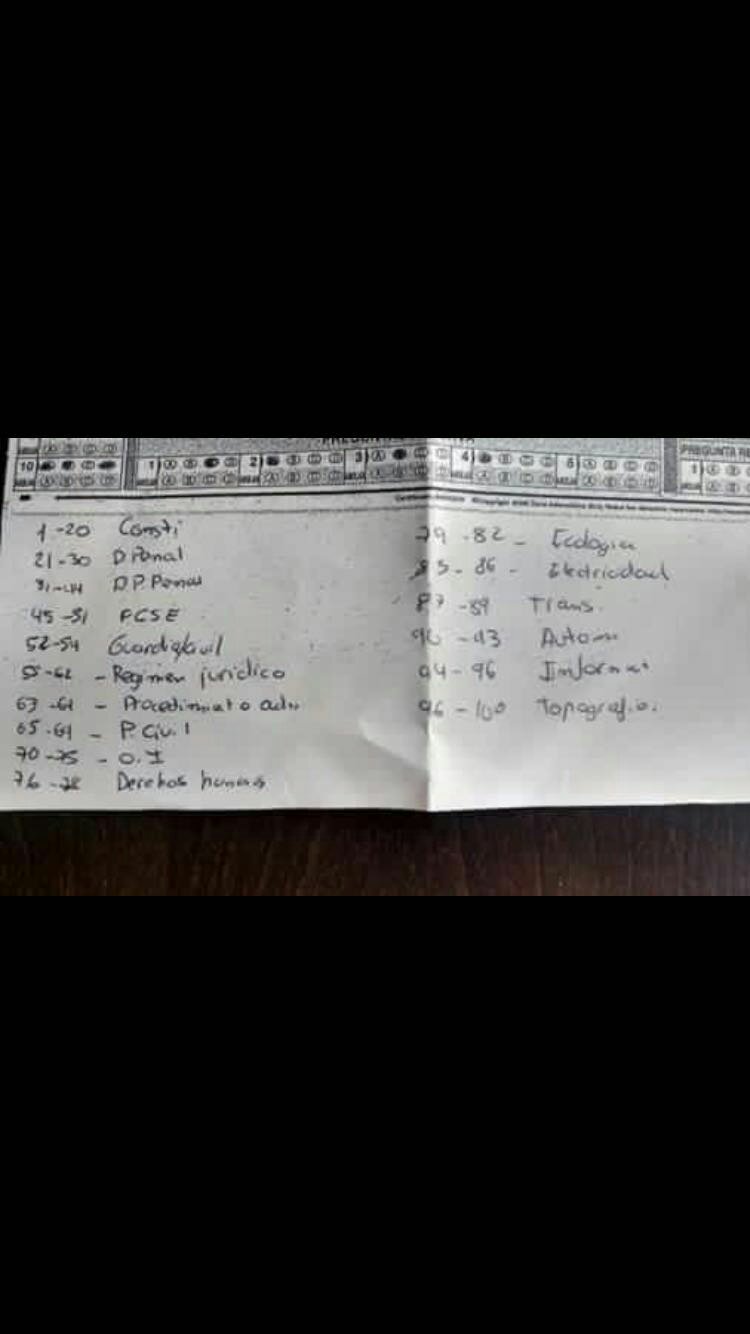 10 1 A B C D 2 A B C D 3 A B C D 4 A B C D 5 A B C D 1
PREGUNTA RE
1-20 Consti
21-30 D Penal
31-44 D P. Penal
45-51 FCSE
52-54 Guardia Civil
55-62 - Regimen juridico
63-64 - Procedimiento adm
65-69 - P. Civil
70-75 - O.I
76-78 Derechos humanos
79-82 - Ecologia
83-86 - Electricidad
87-89 Trans.
90-93 Automo
94-96 Informat
96-100 Topografia.